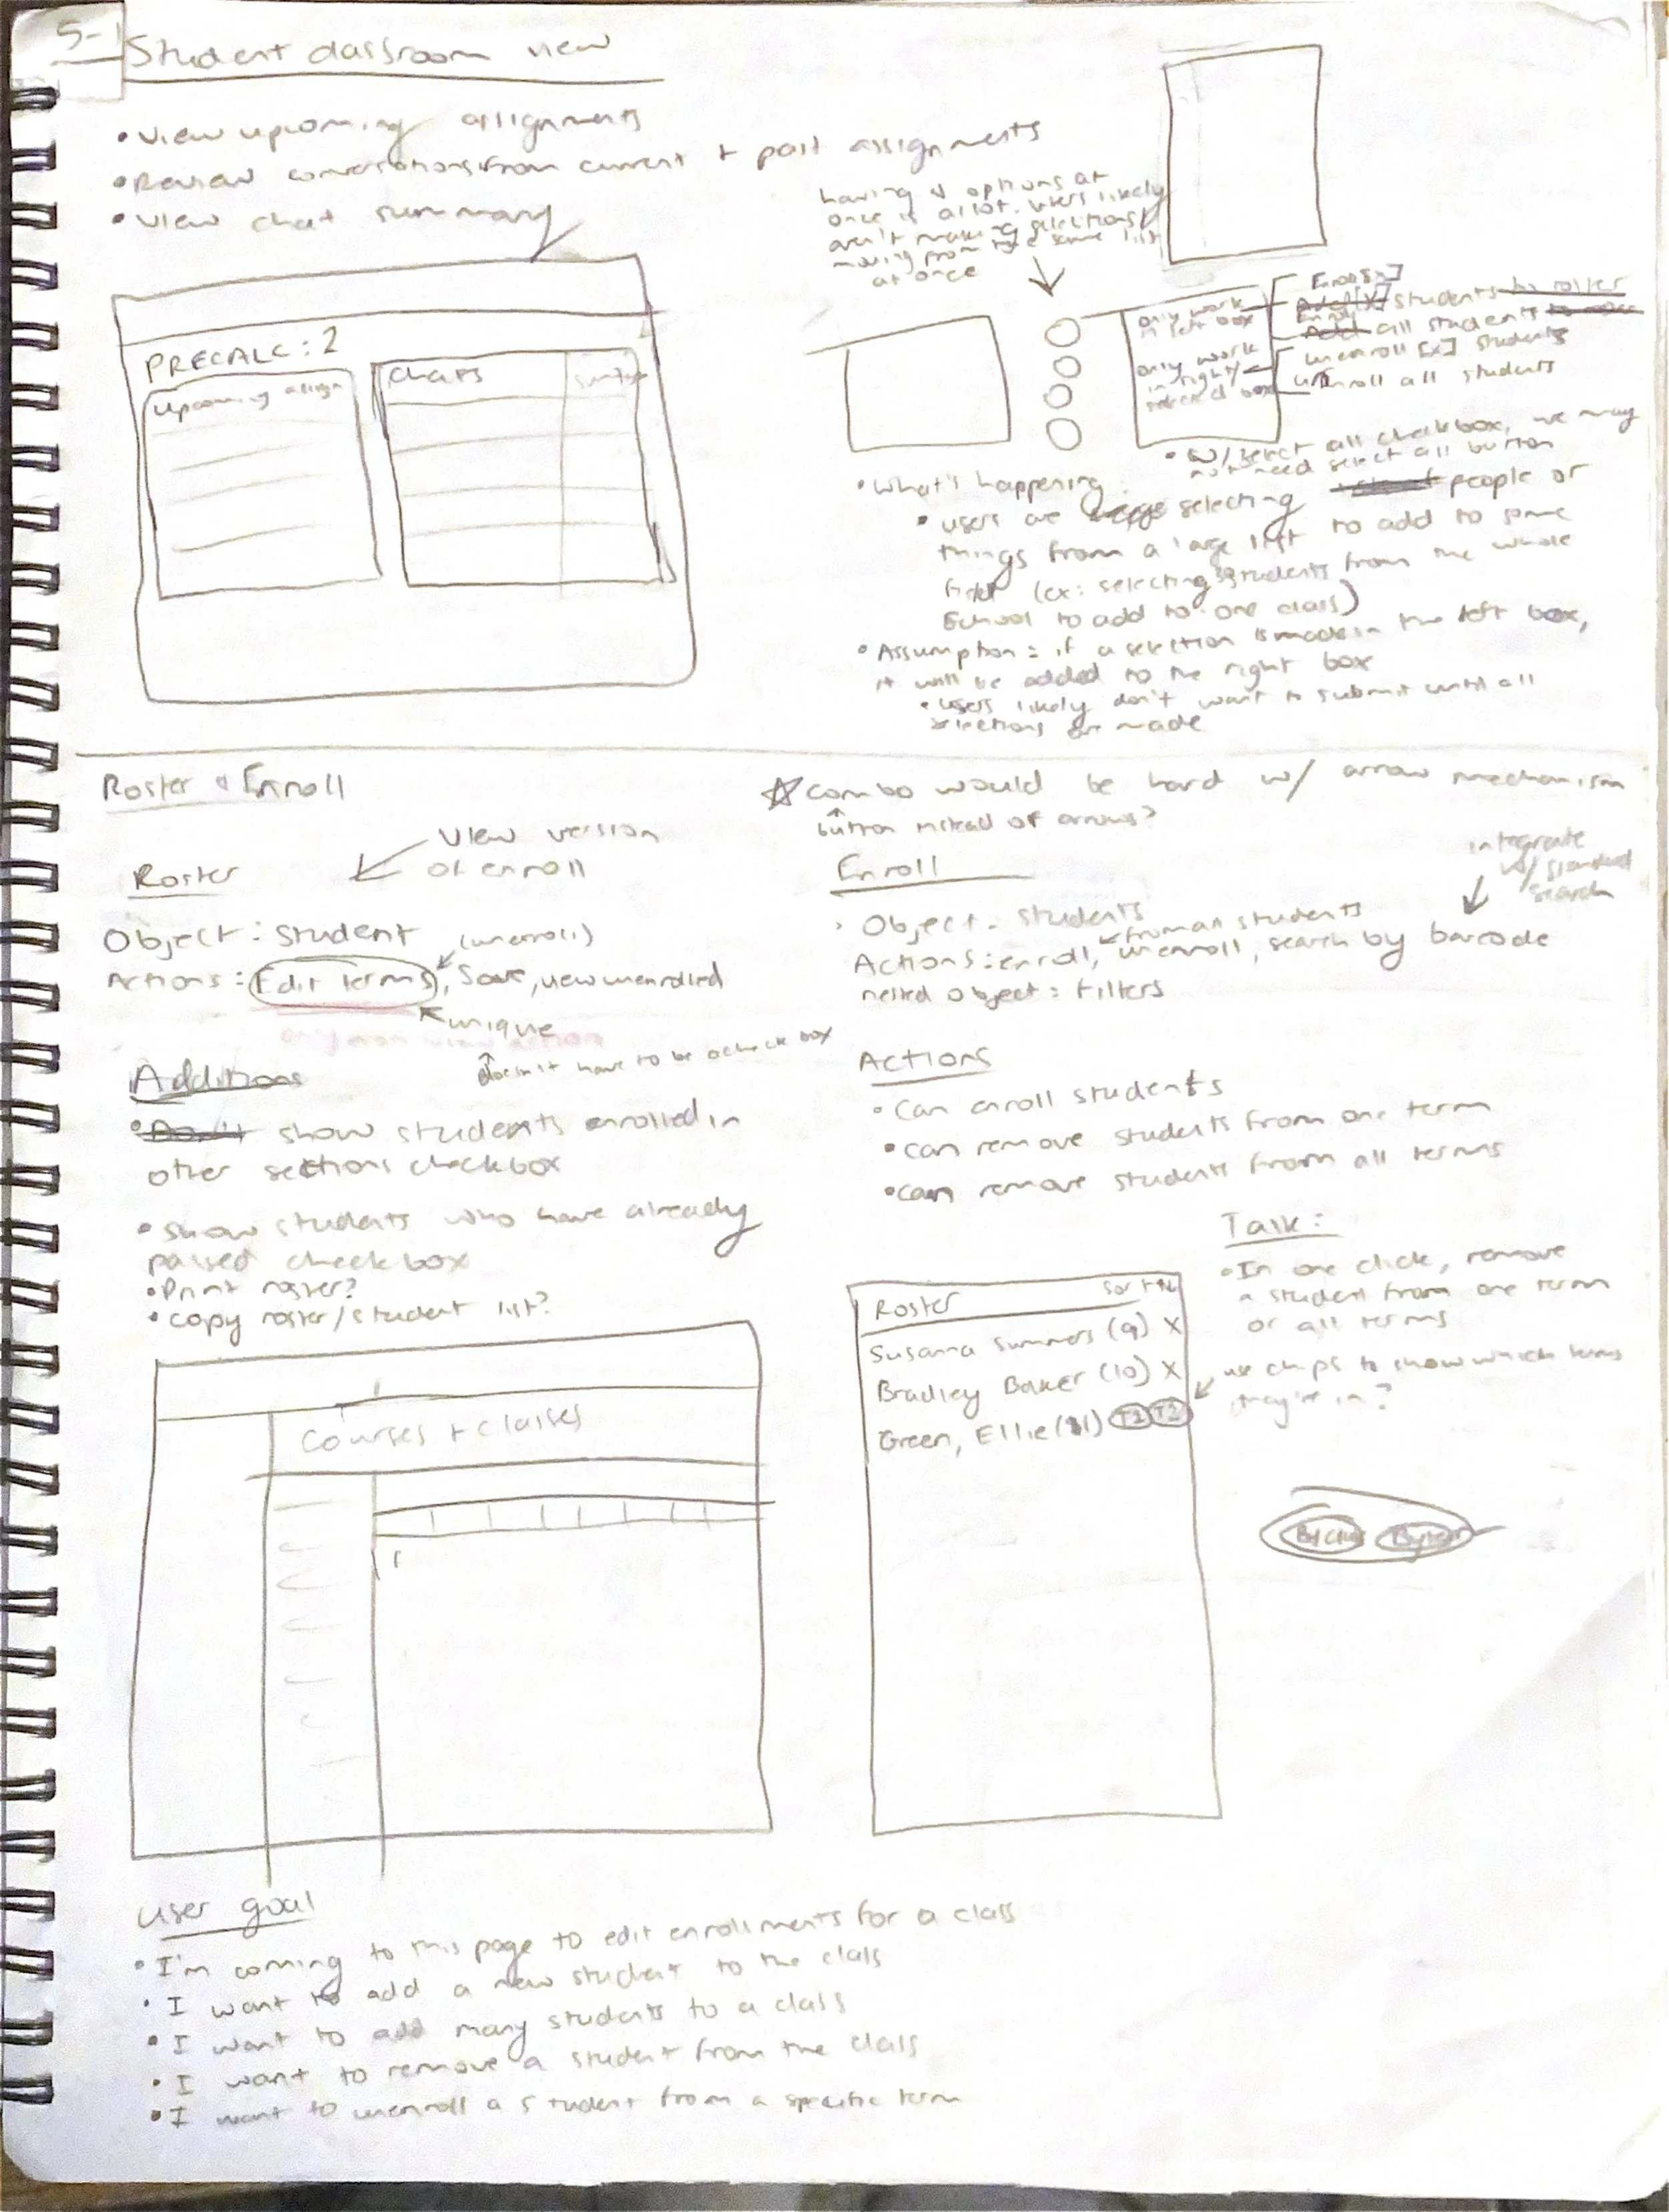 5-1
Student classroom view
• View upcoming assignments
• Review conversations from current + past assignments
• View chat summary
PRECALC: 2
Upcoming assign
Chats
having 4 options at
once is a lot. Users likely
aren't making selections/
moving from the same list
at once
only work
in left box
only work
in right/
selected box
Enroll [x]
Add [X] students to roster
Enroll
Add all students to roster
unenroll [x] students
unenroll all students
• w/ select all checkbox, we may
not need select all button
• What's happening
• users are selecting people or
things from a large list to add to some
(ex: selecting students from the whole
school to add to one class)
• Assumption: if a selection is made in the left box,
it will be added to the right box
• users likely don't want to submit until all
selections are made
Roster + Enroll
☆ Combo would be hard w/ arrow mechanism
button instead of arrows?
View version
of enroll
Roster
Object: Student
(unenroll)
Actions: Edit terms, Save, view unenrolled
unique
doesn't have to be a checkbox
Additions
• Don't show students enrolled in
other sections checkbox
• Show students who have already
passed checkbox
• Print roster?
• Copy roster/student list?
Courses + classes
Enroll
integrate
w/ standard
search
• Object: students
from all students
Actions: enroll, unenroll, search by barcode
nested object: filters
Actions
• Can enroll students
• Can remove students from one term
• can remove students from all terms
Task:
• In one click, remove
a student from one term
or all terms
use chips to show which terms
they're in?
Roster
Susanna Summers (9) X
Bradley Baker (10) X
Green, Ellie (11) T1 T2
By class
By term
User goal
• I'm coming to this page to edit enrollments for a class
• I want to add a new student to the class
• I want to add many students to a class
• I want to remove a student from the class
• I want to unenroll a student from a specific term